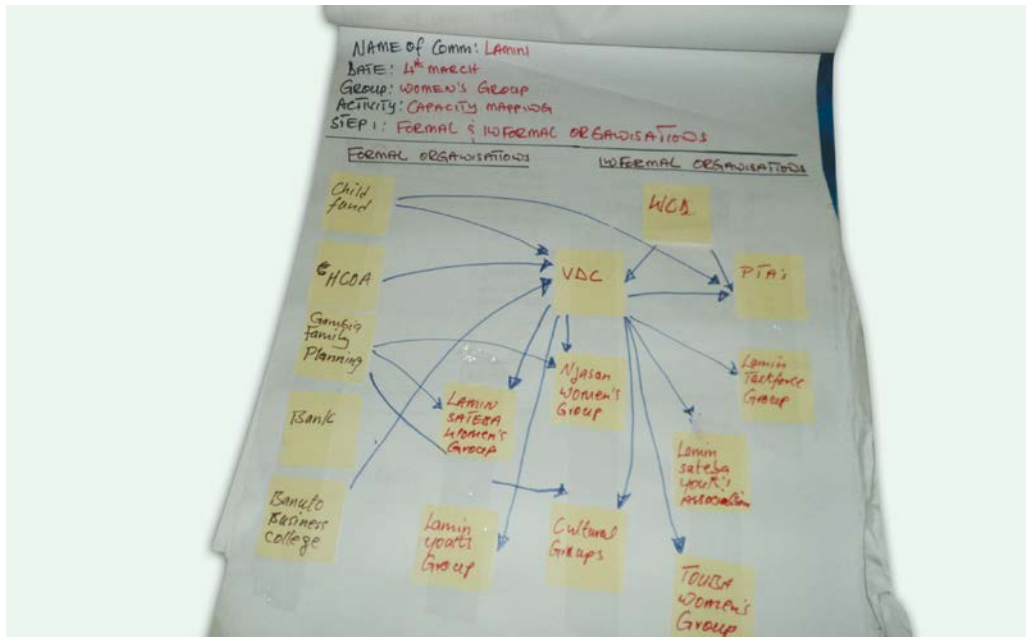 NAME of Comm: LAMIN
DATE: 4th MARCH
GROUP: WOMEN'S GROUP
ACTIVITY: CAPACITY MAPPING
STEP 1: FORMAL & INFORMAL ORGANISATIONS
FORMAL ORGANISATIONS
INFORMAL ORGANISATIONS
Child
fund
HCOA
Gambia
Family
Planning
Bank
Business
College
WCD
VDC
PTA's
LAMIN
SATEBA
WOMEN'S
Group
Njason
Women's
Group
Lamin
Taskforce
Group
Lamin
sateba
youth's
Association
Lamin
youth
Group
Cultural
Groups
TOUBA
Women's
Group